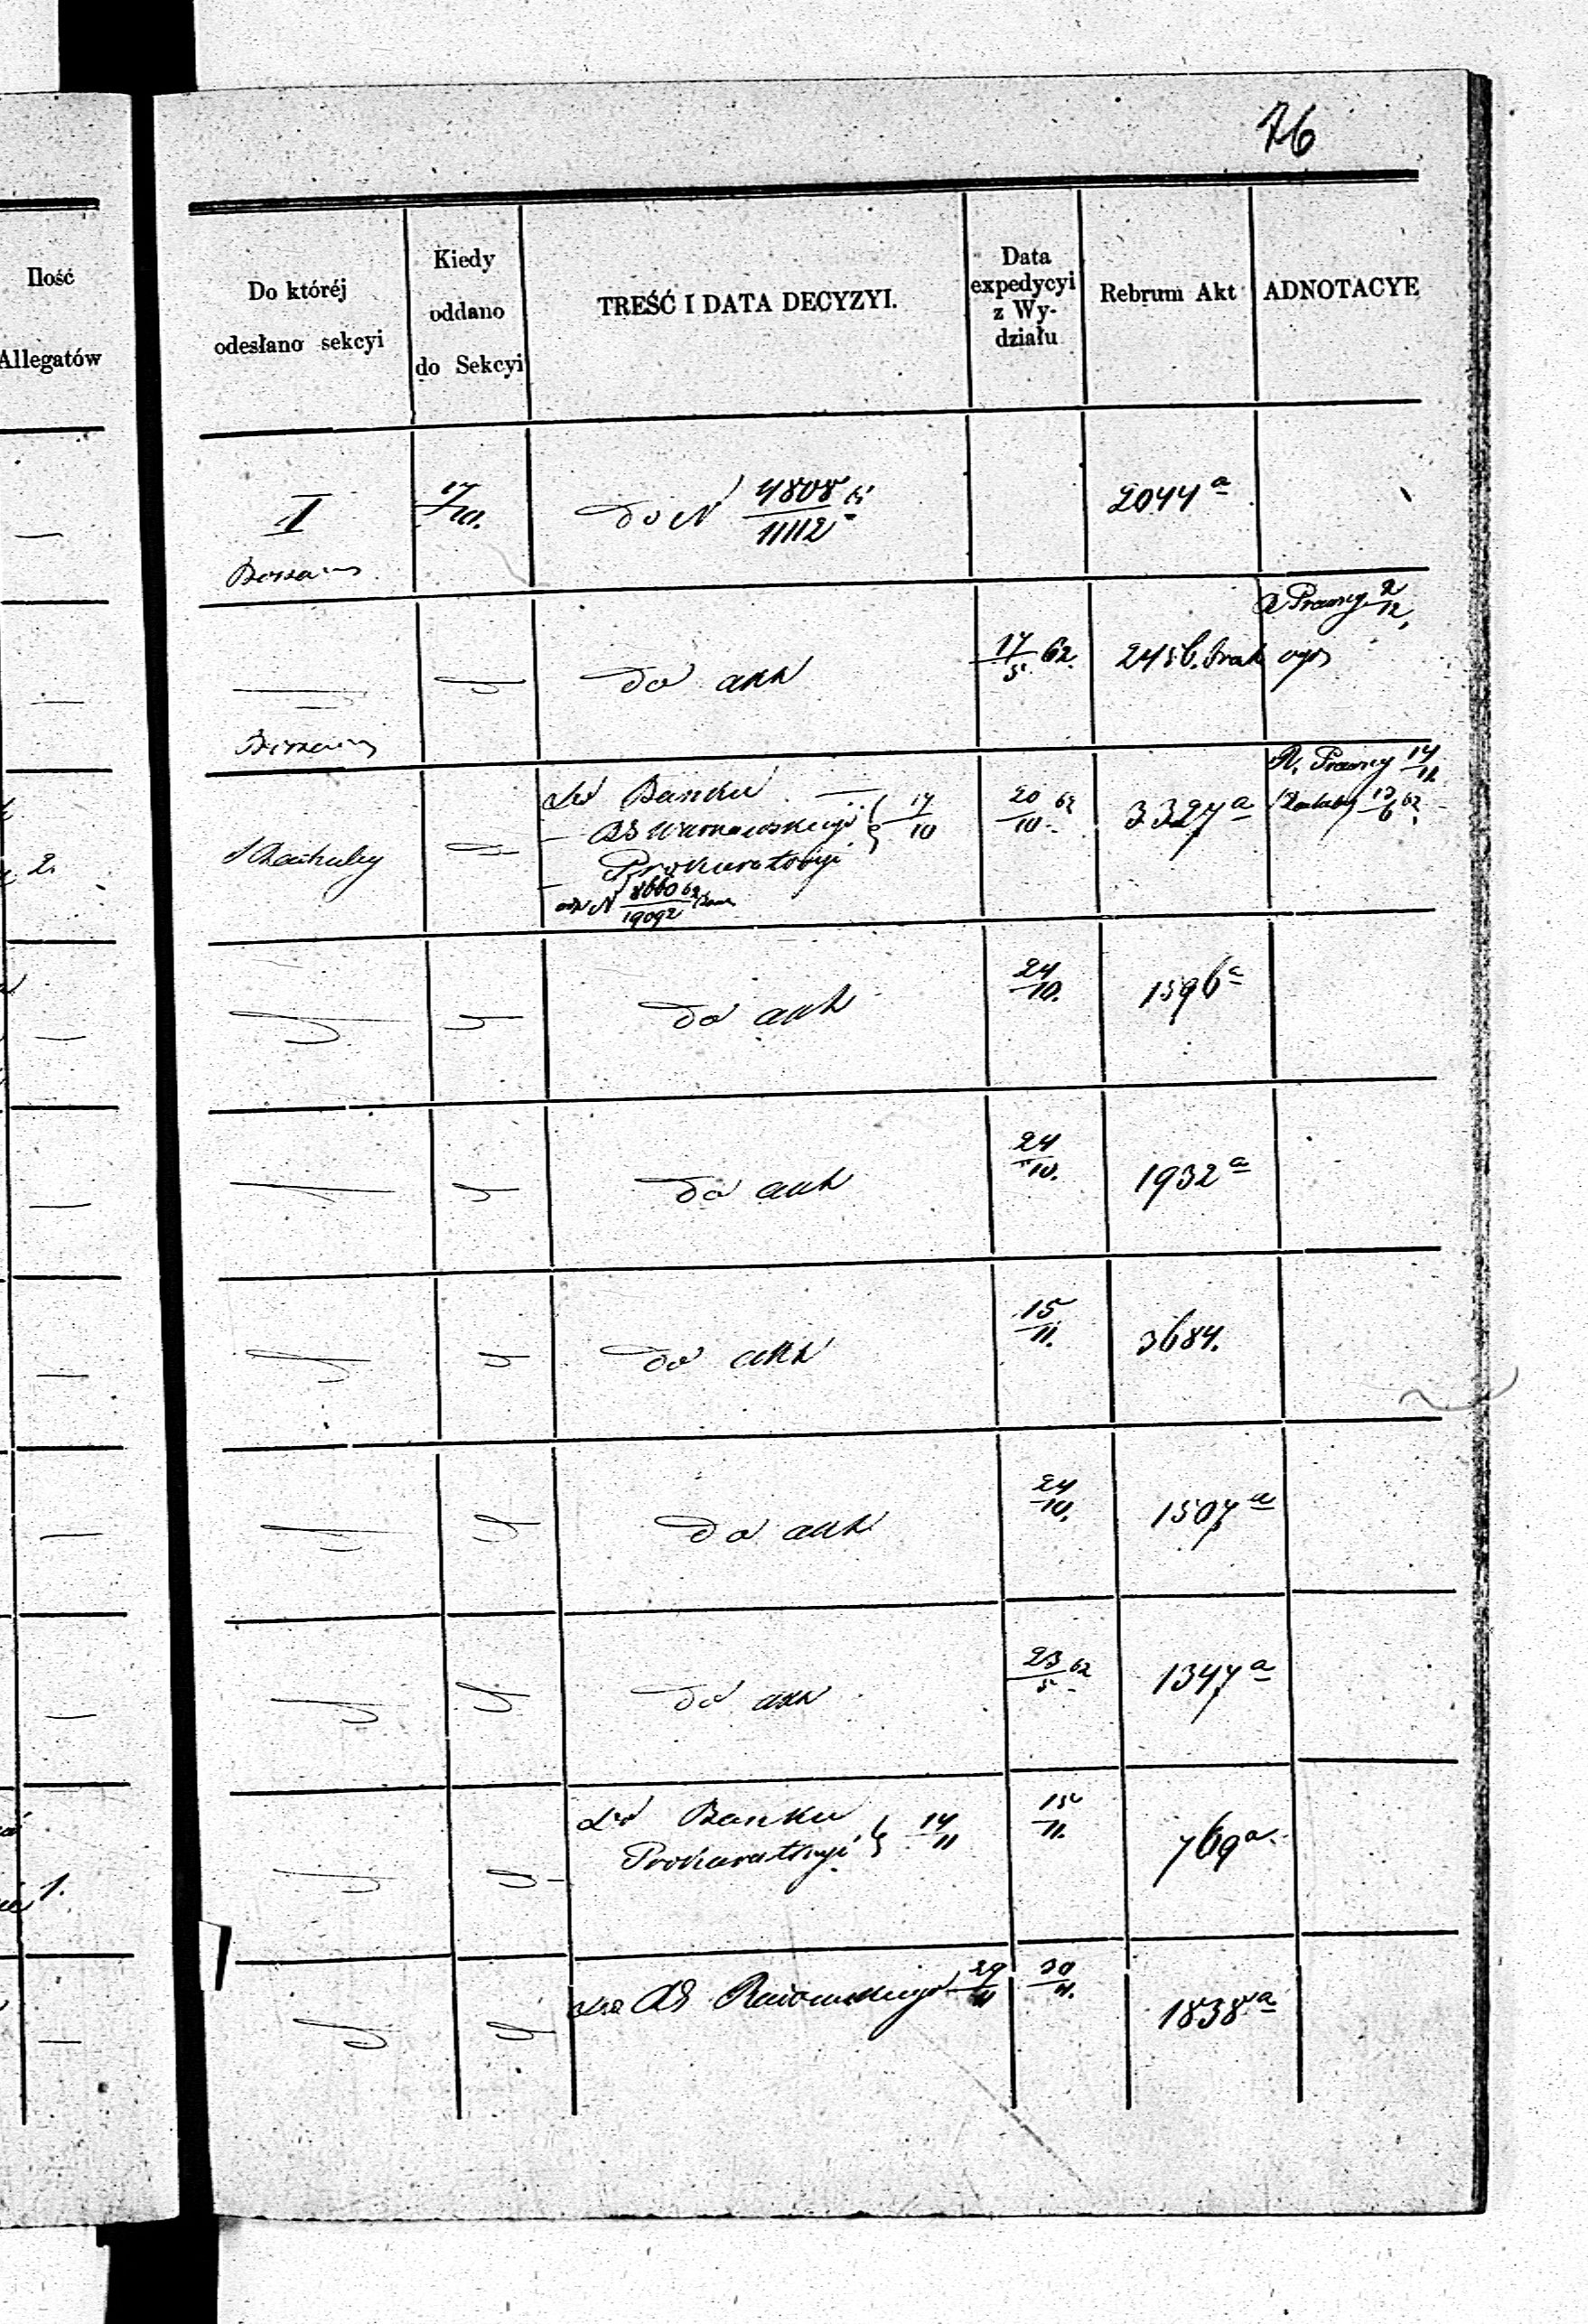 76
Ilość
Allegatów
Do któréj
odesłano sekcyi
Kiedy
oddano
do Sekcyi
TREŚĆ I DATA DECYZYI.
Data
expedycyi
z Wy-
działu
Rebrum Akt
ADNOTACYE
II
17/10.
do N 4808/11112
2044 a
do akt
17/5 62.
245b.
Prawny 2/12
2.
Do Banku
Prokuratoryi
17/10
N 8660 62/19092
20/10 62
3327 a
Prawny 14/11
12/6 62
do akt
24/10.
1596 a
do akt
24/10.
1932 a
do akt
15/11.
3684.
do akt
24/10.
1507 a
do akt
23/5 62
1347 a
1.
Do Banku
Prokuratoryi
14/11
15/11.
769 a
Do
29/11
30/11.
1838 a